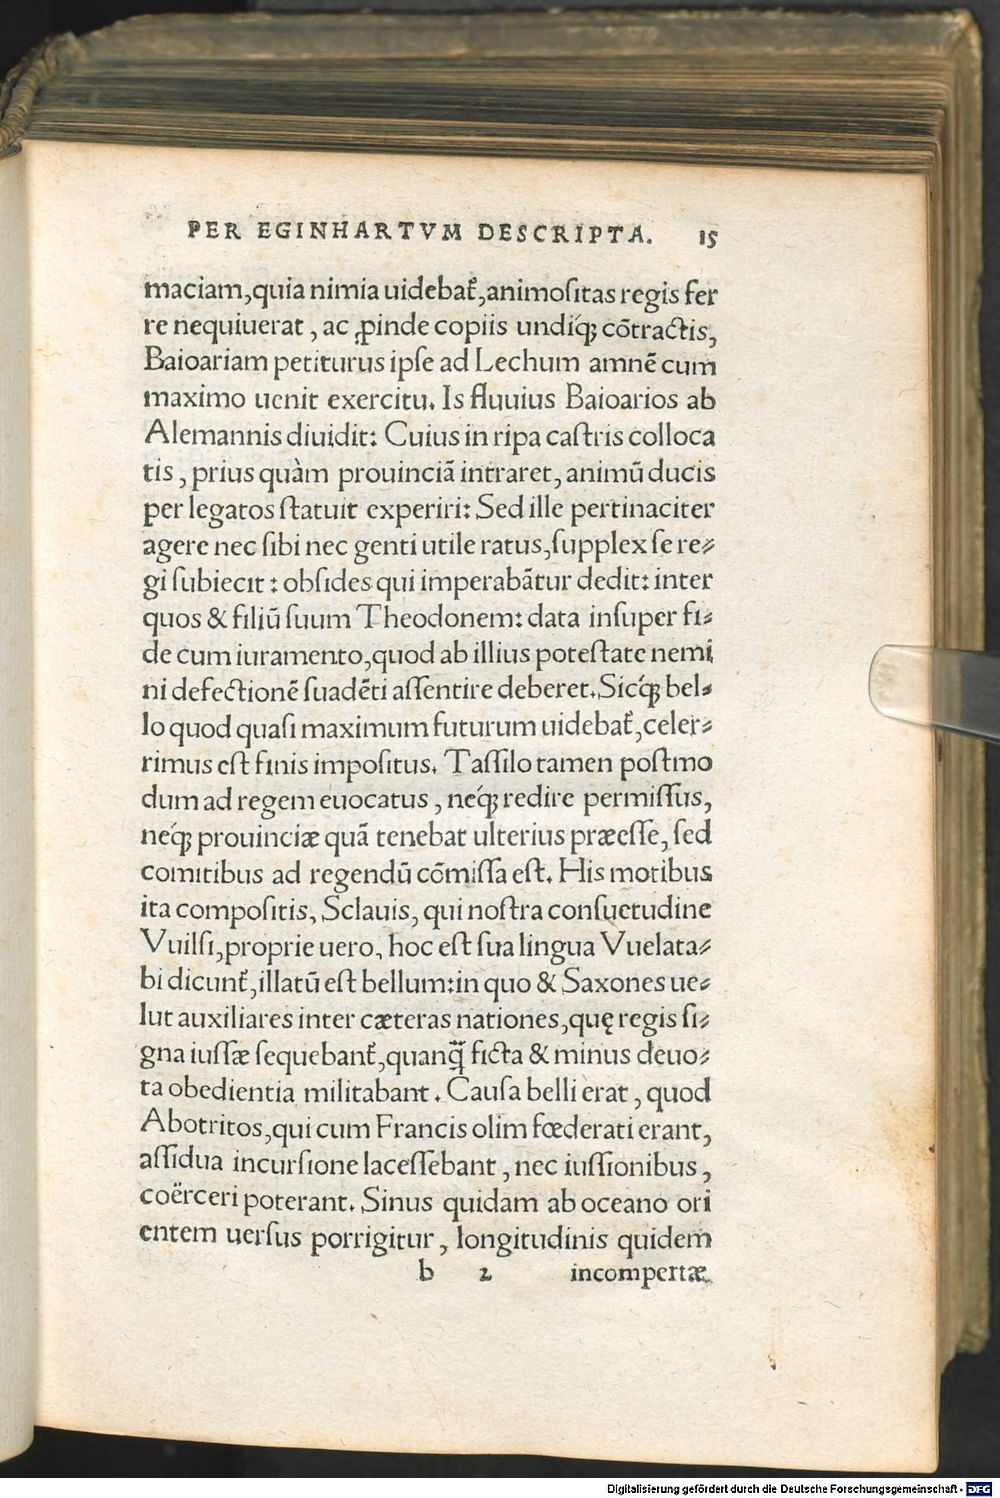 PER EGINHARTVM DESCRIPTA. 15
maciam,quia nimia uidebat᷑,animoſitas regis fer
re nequiuerat , ac ꝓinde copiis undiq́ꝫ cõtractis,
Baioariam petiturus ipſe ad Lechum amnẽ cum
maximo uenit exercitu. Is fluuius Baioarios ab
Alemannis diuidit: Cuius in ripa caſtris colloca
tis , prius quàm prouinciã intraret, animũ ducis
per legatos ſtatuit experiri: Sed ille pertinaciter
agere nec ſibi nec genti utile ratus,ſupplex ſe re⸗
gi ſubiecit : obſides qui imperabãtur dedit: inter
quos & filiũ ſuum Theodonem: data inſuper fi⸗
de cum iuramento,quod ab illius poteſtate nemi
ni defectionẽ ſuadẽti aſſentire deberet.Sicq́ꝫ bel⸗
lo quod quaſi maximum futurum uidebat᷑,celer⸗
rimus eſt finis impoſitus. Taſſilo tamen poſtmo
dum ad regem euocatus , neq́ꝫ redire permiſſus,
neq́ꝫ prouinciæ quã tenebat ulterius præeſſe, ſed
comitibus ad regendũ cõmiſſa eſt. His motibus
ita compoſitis, Sclauis, qui noſtra conſuetudine
Vuilſi,proprie uero, hoc eſt ſua lingua Vuelata⸗
bi dicunt᷑,illatũ eſt bellum:in quo & Saxones ue⸗
lut auxiliares inter cæteras nationes,quę regis ſi⸗
gna iuſſæ ſequebant᷑,quanꝗ̃ ficta & minus deuo⸗
ta obedientia militabant . Cauſa belli erat , quod
Abotritos,qui cum Francis olim fœderati erant,
aſſidua incurſione laceſſebant , nec iuſſionibus ,
coërceri poterant. Sinus quidam ab oceano ori
entem uerſus porrigitur , longitudinis quidem
b 2 incompertæ
Digitalisierung gefördert durch die Deutsche Forschungsgemeinschaft - DFG